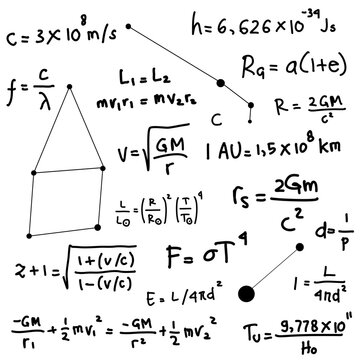 c = 3×10⁸ m/s
h = 6,626×10⁻³⁴ Js
f = c/λ
L₁ = L₂
mv₁r₁ = mv₂r₂
Rₐ = a(1+e)
R = 2GM/c²
C
v = √(GM/r)
1 AU = 1,5×10⁸ km
L/L⊙ = (R/R⊙)² (T/T⊙)⁴
rₛ = 2Gm/c²
d = 1/p
z+1 = √((1+(v/c))/(1-(v/c)))
F = σT⁴
E = L/4πd²
l = L/4πd²
-GM/r₁ + ½mv₁² = -GM/r² + ½mv₂²
Tᵤ = 9,778×10¹¹/H₀